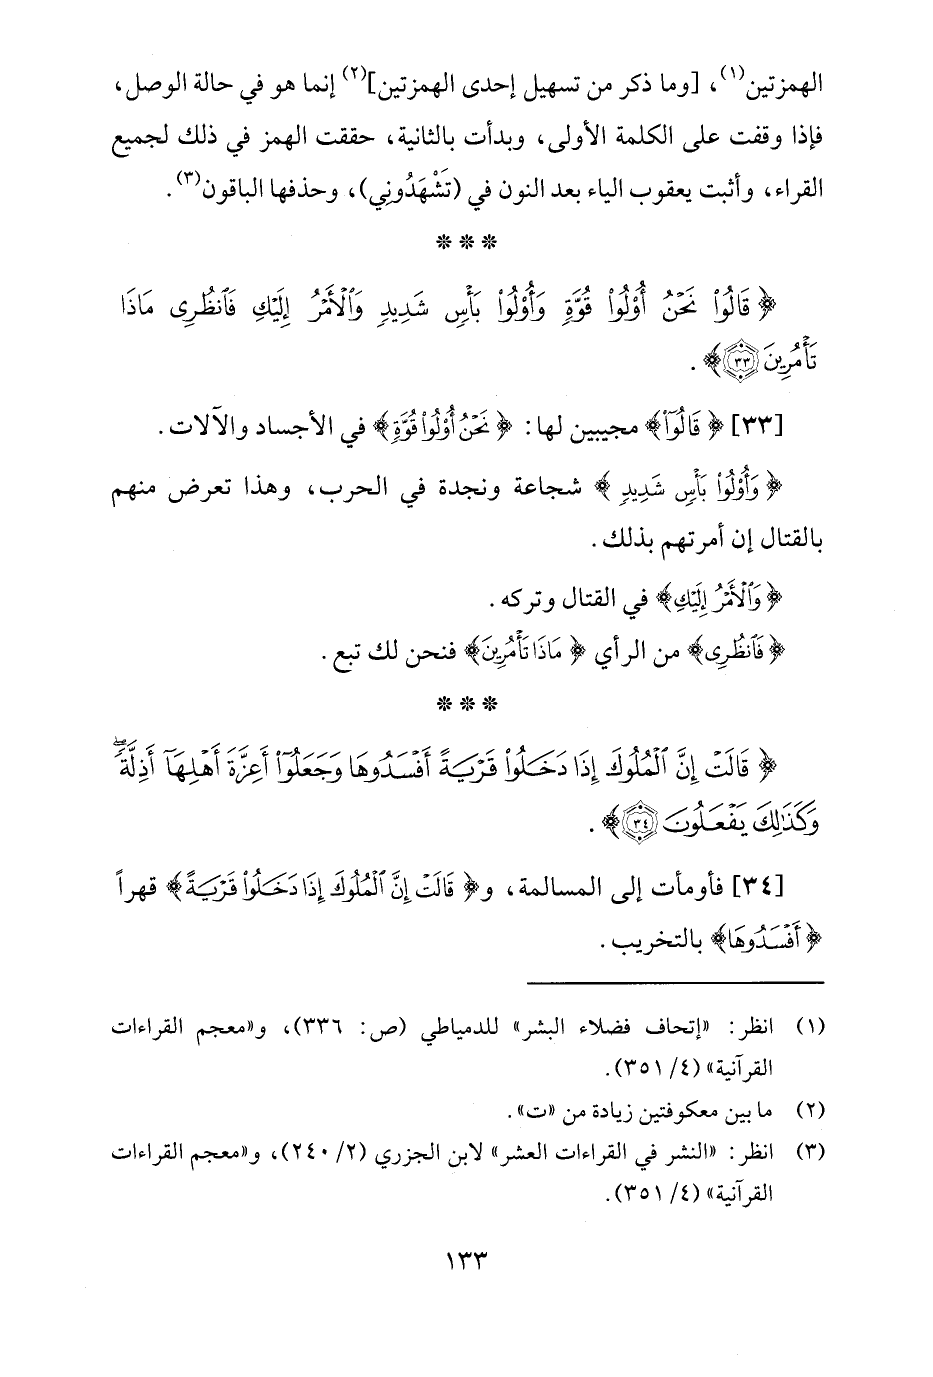 الهمزتين(١)، [وما ذكر من تسهيل إحدى الهمزتين](٢) إنما هو في حالة الوصل،
فإذا وقفت على الكلمة الأولى، وبدأت بالثانية، حققت الهمز في ذلك لجميع
القراء، وأثبت يعقوب الياء بعد النون في (تَشْهَدُونِي)، وحذفها الباقون(٣).
* * *
﴿ قَالُوا۟ نَحۡنُ أُو۟لُوا۟ قُوَّةٍ وَأُو۟لُوا۟ بَأۡسٍ شَدِيدٍ وَٱلۡأَمۡرُ إِلَيۡكِ فَٱنظُرِى مَاذَا
تَأۡمُرِينَ ٣٣﴾ .
[٣٣] ﴿ قَالُوٓا۟﴾ مجيبين لها: ﴿ نَحۡنُ أُو۟لُوا۟ قُوَّةٍ﴾ في الأجساد والآلات.
﴿ وَأُو۟لُوا۟ بَأۡسٍ شَدِيدٍ ﴾ شجاعة ونجدة في الحرب، وهذا تعرض منهم
بالقتال إن أمرتهم بذلك.
﴿ وَٱلۡأَمۡرُ إِلَيۡكِ﴾ في القتال وتركه.
﴿ فَٱنظُرِى﴾ من الرأي ﴿ مَاذَا تَأۡمُرِينَ﴾ فنحن لك تبع.
* * *
﴿ قَالَتۡ إِنَّ ٱلۡمُلُوكَ إِذَا دَخَلُوا۟ قَرۡيَةً أَفۡسَدُوهَا وَجَعَلُوٓا۟ أَعِزَّةَ أَهۡلِهَآ أَذِلَّةًۖ
وَكَذَٰلِكَ يَفۡعَلُونَ ٣٤﴾ .
[٣٤] فأومأت إلى المسالمة، و﴿ قَالَتۡ إِنَّ ٱلۡمُلُوكَ إِذَا دَخَلُوا۟ قَرۡيَةً﴾ قهراً
﴿ أَفۡسَدُوهَا﴾ بالتخريب.
(١) انظر: «إتحاف فضلاء البشر» للدمياطي (ص: ٣٣٦)، و«معجم القراءات
القرآنية» (٤/ ٣٥١).
(٢) ما بين معكوفتين زيادة من «ت».
(٣) انظر: «النشر في القراءات العشر» لابن الجزري (٢/ ٢٤٠)، و«معجم القراءات
القرآنية» (٤/ ٣٥١).
١٣٣